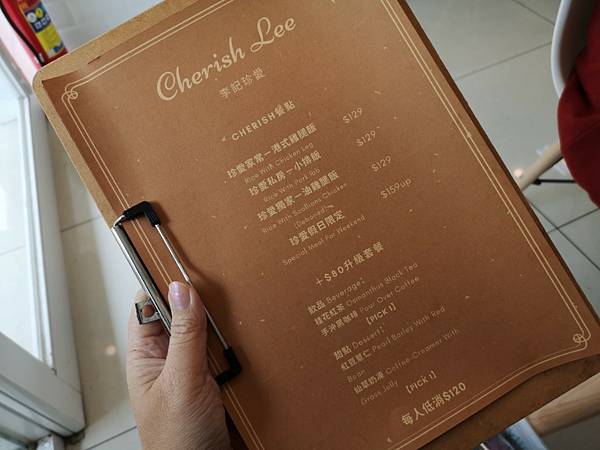 Cherish Lee
李記珍愛
CHERISH餐點
珍愛家常－港式雞腿飯 $129
Rice With Chicken Leg
珍愛私房－小排飯 $129
Rice With Pork Rib
珍愛獨家－油雞腿飯 $129
Rice With Scallions Chicken
(Deboned)
珍愛假日限定 $159up
Special Meal For Weekend
＋$80升級套餐
飲品 Beverage:
桂花紅茶 Osmanthus Black Tea
手沖黑咖啡 Pour Over Coffee
【PICK 1】
甜點 Dessert:
紅豆薏仁 Pearl Barley With Red
Bean
仙草奶凍 Coffee-Creamer With
Grass Jelly 【PICK 1】
每人低消$120